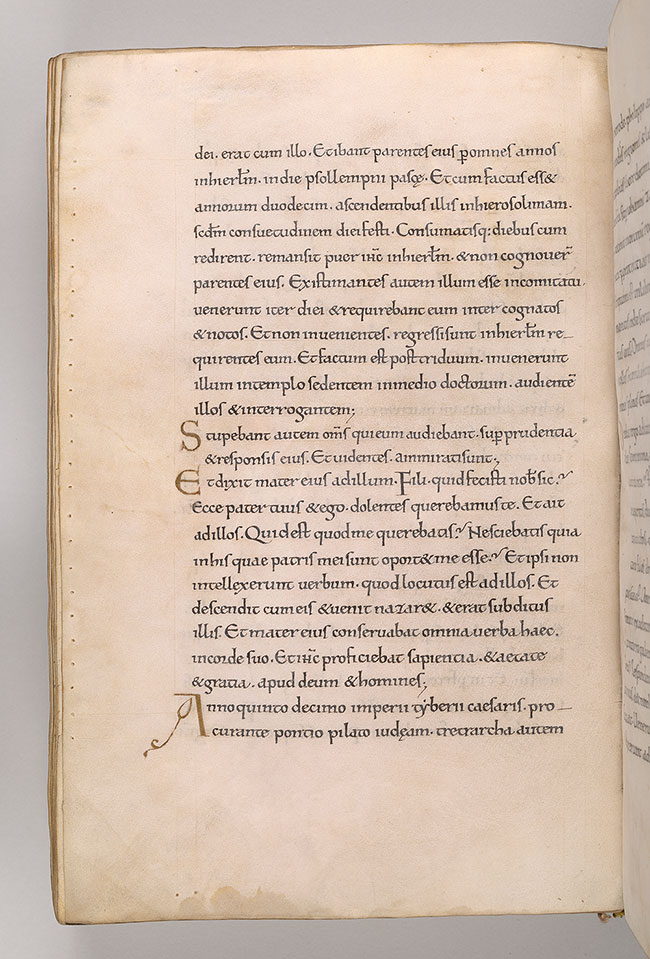 dei. erat cum illo. Et ibant parentes eius p omnes annos
in hierłm. in die psollempni paschę. Et cum factus ess&
annorum duodecim. ascendentibus illis in hierosolimam.
scdm̄ consuetudinem diei festi. Consumatisq; diebus cum
redirent. remansit puer ihc̄ in hierłm. & non cognover̄
parentes eius. Existimantes autem illum esse in comitatu.
venerunt iter diei & requirebant eum inter cognatos
& notos. Et non invenientes. regressi sunt in hierłm re_
quirentes eum. Et factum est post triduum. invenerunt
illum in templo sedentem in medio doctorum. audientē
illos & interrogantem;
Stupebant autem om̄s qui eum audiebant. sup prudentia
& responsis eius. Et videntes. ammirati sunt;
Et dixit mater eius ad illum. Fili. quid fecisti nob̄ sic?
Ecce pater tuus & ego. dolentes querebamus te. Et ait
ad illos. Quid est quod me querebatis? Nesciebatis quia
in his quae patris mei sunt oport& me esse? Et ipsi non
intellexerunt verbum. quod locutus est ad illos. Et
descendit cum eis & venit nazar&. & erat subditus
illis. Et mater eius conservabat omnia verba haec.
in corde suo. Et ihc̄ proficiebat sapientia. & aetate
& gratia. apud deum & homines;
Anno quinto decimo imperii tyberii caesaris. pro_
curante pontio pilato iudęam. tretrarcha autem